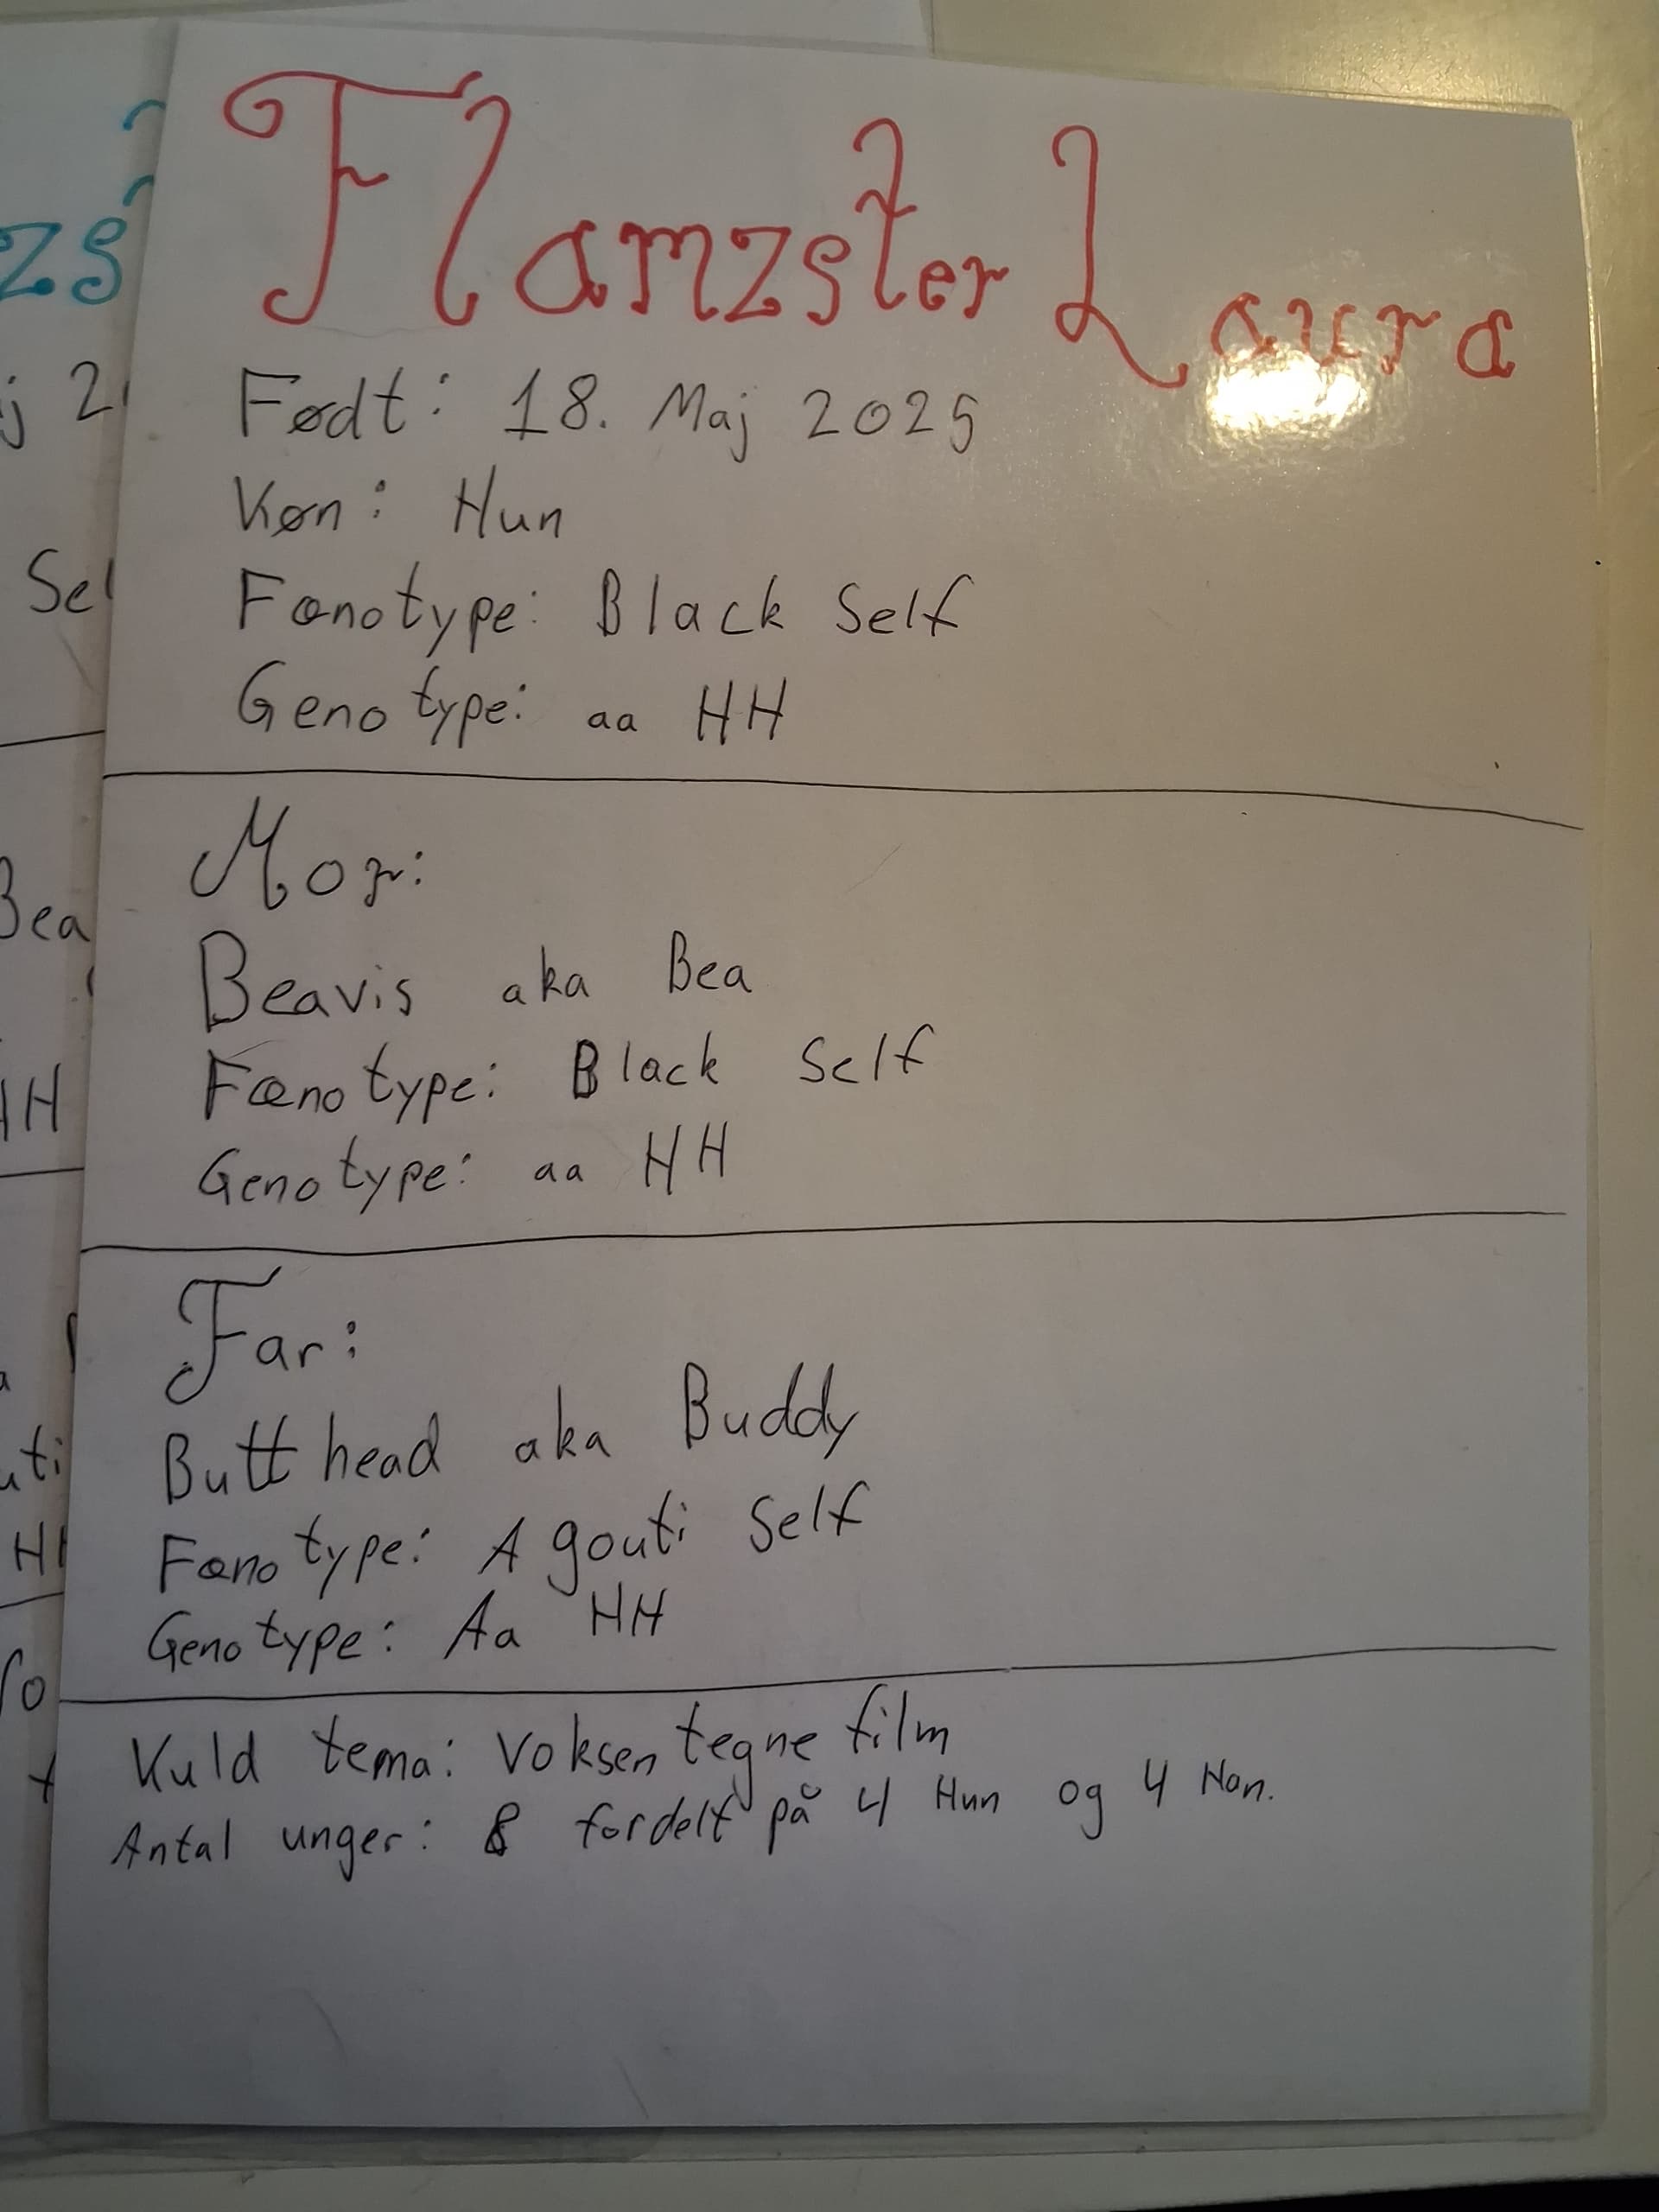 Flamzster Laura
Født: 18. Maj 2025
Køn: Hun
Fænotype: Black Self
Genotype: aa HH
Mor:
Beavis aka Bea
Fænotype: Black Self
Genotype: aa HH
Far:
Butthead aka Buddy
Fænotype: Agouti Self
Genotype: Aa HH
Kuld tema: Voksen tegne film
Antal unger: 8 fordelt på 4 Hun og 4 Han.
zs
j 2
Sel
Bea
HH
uti